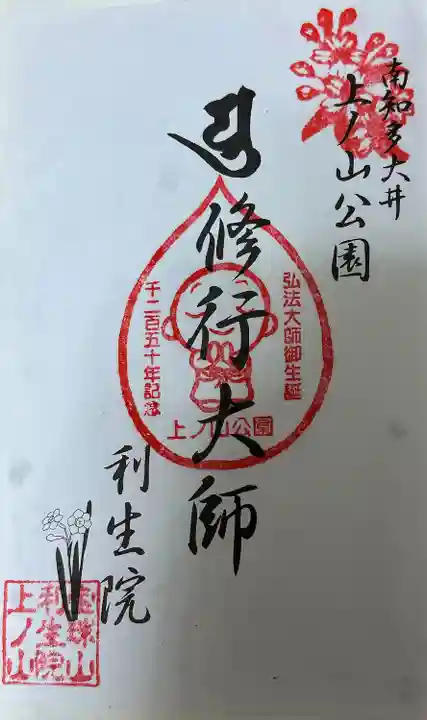 南知多大井
上ノ山公園
弘法大師御生誕
修行大師
千二百五十年記念
上ノ山公園
利生院
宝珠山
利生院
上ノ山